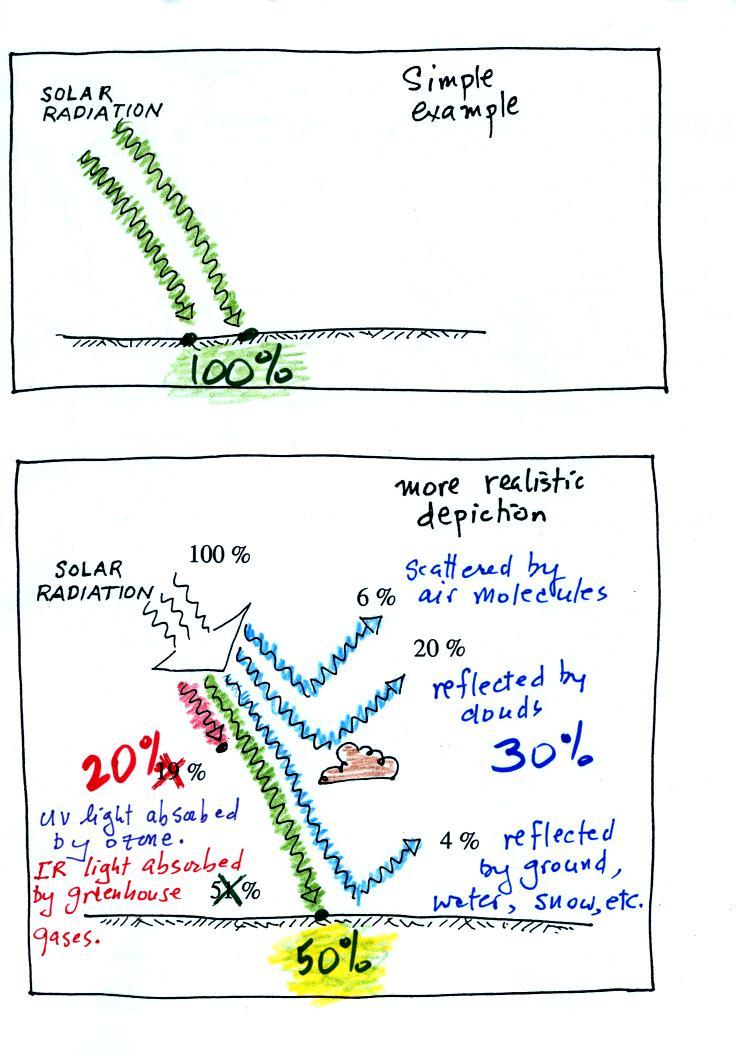 SOLAR
RADIATION
Simple
example
100%
more realistic
depiction
100 %
SOLAR
RADIATION
scattered by
6 % air molecules
20 %
reflected by
clouds
30%
20%
19 %
UV light absorbed
by ozone.
IR light absorbed
by greenhouse
gases.
51 %
4 % reflected
by ground,
water, snow, etc.
50%